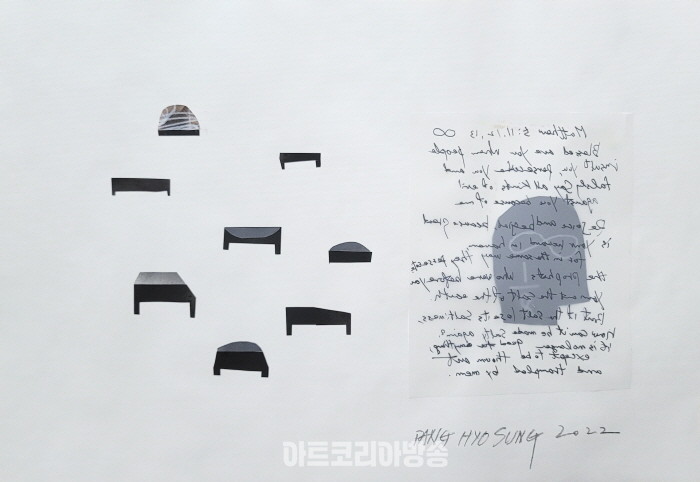 Matthew 5:11, 12, 13
Blessed are you when people
insult you, persecute you and
falsely say all kinds of evil
against you because of me
Rejoice and be glad because great
is your reward in heaven
for in the same way they persecute
the prophets who were before you
You are the salt of the earth.
But if the salt lose its saltness,
how can it be made salty again?
it is no longer good for anything,
except to be thrown out
and trampled by men.
PANG HYO SUNG 2022
아트코리아방송